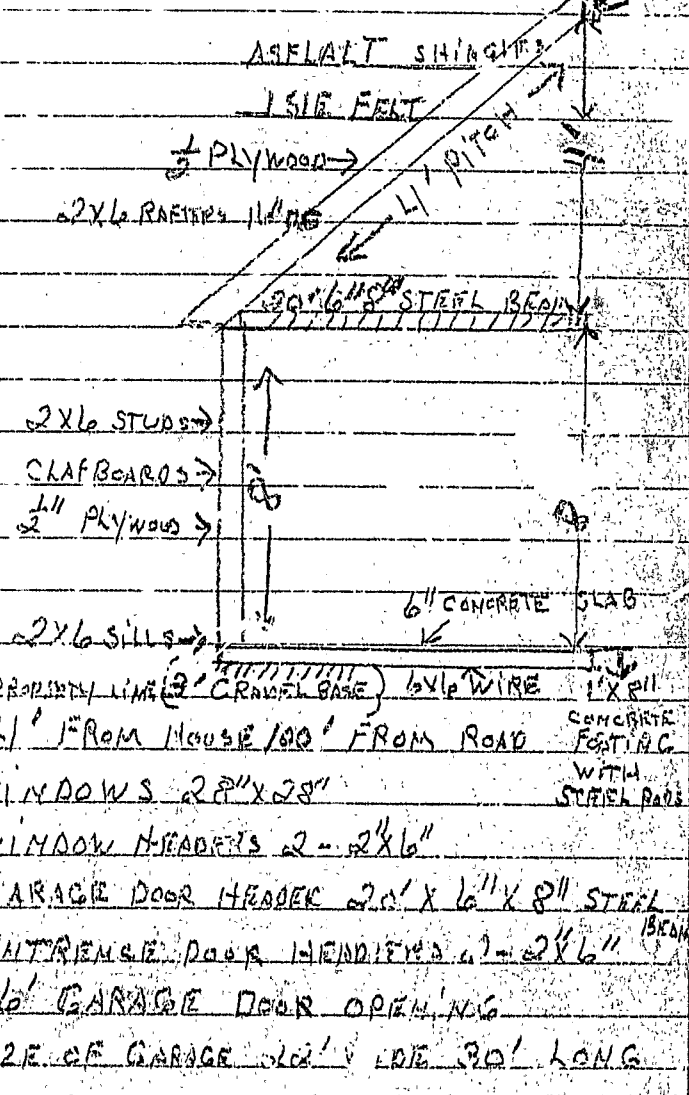 ASFLALT SHINGLES
15LE FELT
1/2 PLYWOOD→
2X6 RAFTERS
4' PITCH
20' 6" 8" STEEL BEAM
2X6 STUDS→
CLAFBOARDS→
8'
1/2" PLYWOOD→
8
6" CONCRETE SLAB
2X6 SILLS→
PROPERTY LINE (3' GRAVEL BASE) 6X6 WIRE 1'X8"
CONCRETE
FOOTING
WITH
STEEL RODS
' FROM HOUSE 100' FROM ROAD
INDOWS 28"X28"
INDOW HEADERS 2-2"X6"
ARAGE DOOR HEADER 20' X 6" X 8" STEEL BEAM
NTRENSE DOOR HEADERS 2-2"X6"
6' GARAGE DOOR OPENING
ZE OF GARAGE 30' LONG